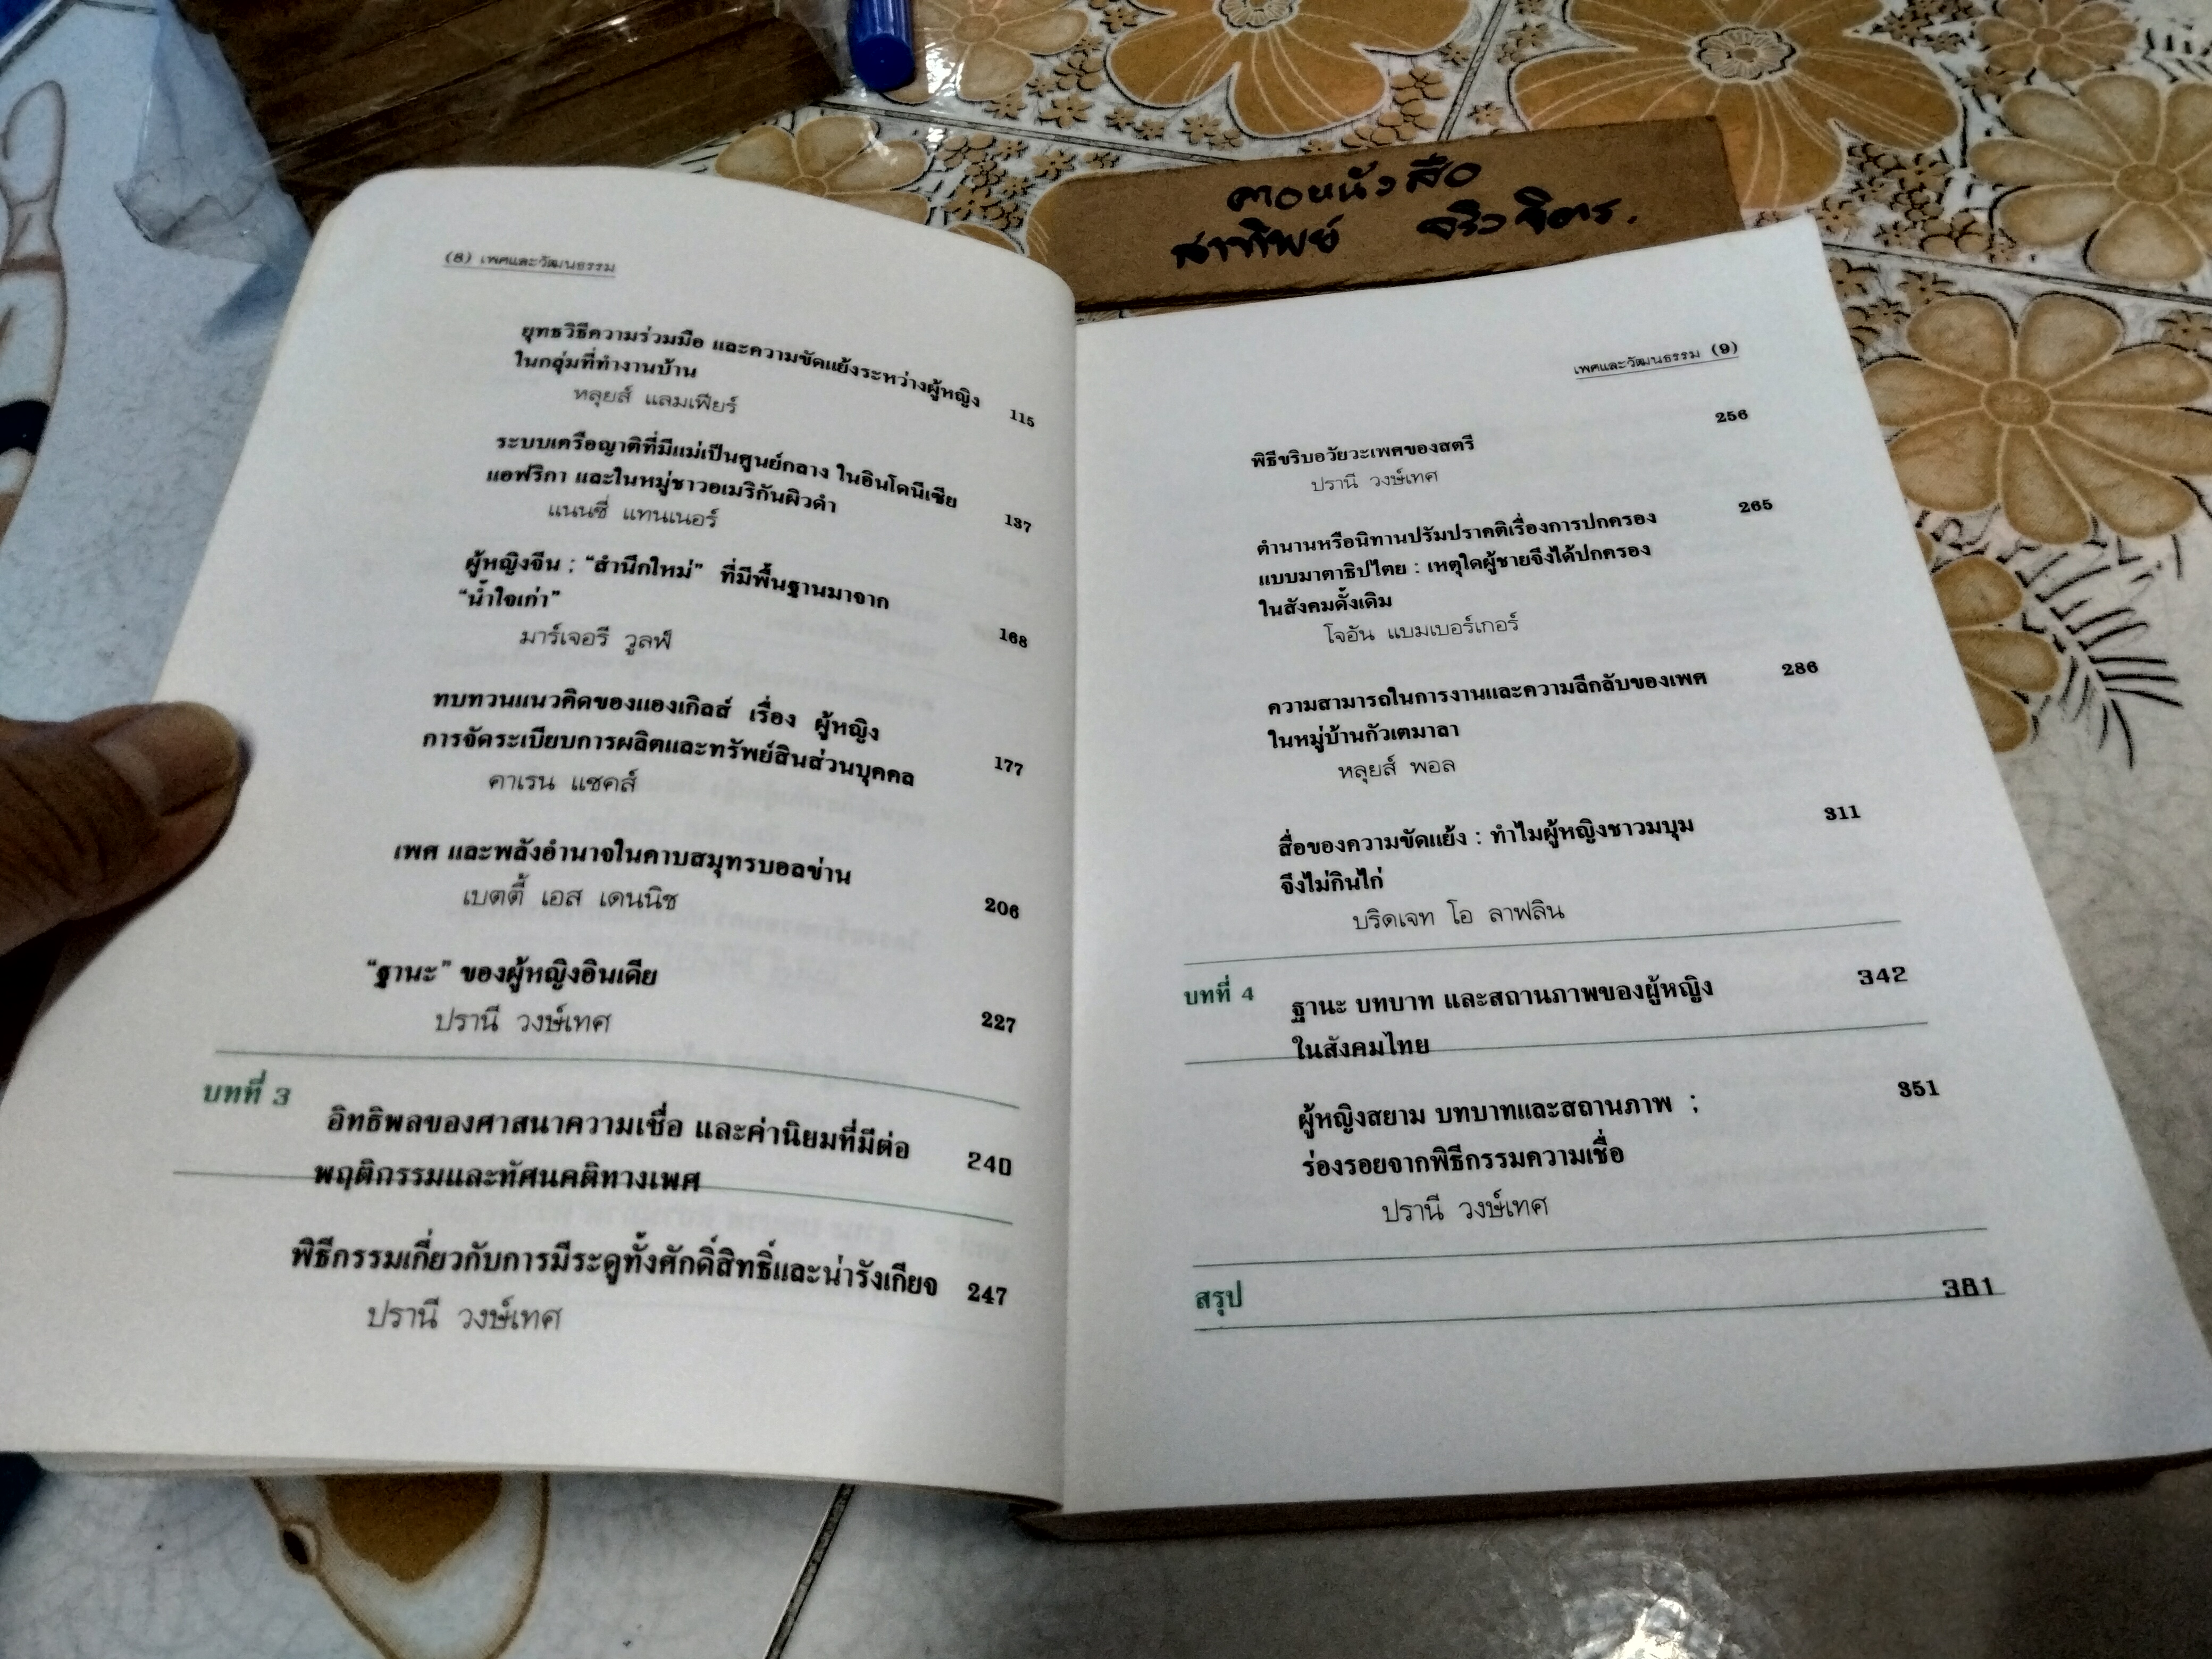 (8) เพศและวัฒนธรรม
ยุทธวิธีความร่วมมือ และความขัดแย้งระหว่างผู้หญิง
ในกลุ่มที่ทำงานบ้าน 115
หลุยส์ แลมเฟียร์
ระบบเครือญาติที่มีแม่เป็นศูนย์กลาง ในอินโดนีเซีย
แอฟริกา และในหมู่ชาวอเมริกันผิวดำ 137
แนนซี่ แทนเนอร์
ผู้หญิงจีน : “สำนึกใหม่” ที่มีพื้นฐานมาจาก
“น้ำใจเก่า” 168
มาร์เจอรี วูลฟ์
ทบทวนแนวคิดของแองเกิลส์ เรื่อง ผู้หญิง
การจัดระเบียบการผลิตและทรัพย์สินส่วนบุคคล 177
คาเรน แซคส์
เพศ และพลังอำนาจในคาบสมุทรบอลข่าน
เบตตี้ เอส เดนนิช 206
“ฐานะ” ของผู้หญิงอินเดีย
ปรานี วงษ์เทศ 227
บทที่ 3 อิทธิพลของศาสนาความเชื่อ และค่านิยมที่มีต่อ 240
พฤติกรรมและทัศนคติทางเพศ
พิธีกรรมเกี่ยวกับการมีระดูทั้งศักดิ์สิทธิ์และน่ารังเกียจ 247
ปรานี วงษ์เทศ
คาอหนังสือ
สาทิพย์
เพศและวัฒนธรรม (9)
พิธีขริบอวัยวะเพศของสตรี 256
ปรานี วงษ์เทศ
ตำนานหรือนิทานปรัมปราคติเรื่องการปกครอง 265
แบบมาตาธิปไตย : เหตุใดผู้ชายจึงได้ปกครอง
ในสังคมดั้งเดิม
โจอัน แบมเบอร์เกอร์
ความสามารถในการงานและความลึกลับของเพศ 286
ในหมู่บ้านกัวเตมาลา
หลุยส์ พอล
สื่อของความขัดแย้ง : ทำไมผู้หญิงชาวมบุม 311
จึงไม่กินไก่
บริดเจท โอ ลาฟลิน
บทที่ 4 ฐานะ บทบาท และสถานภาพของผู้หญิง 342
ในสังคมไทย
ผู้หญิงสยาม บทบาทและสถานภาพ ; 351
ร่องรอยจากพิธีกรรมความเชื่อ
ปรานี วงษ์เทศ
สรุป 381